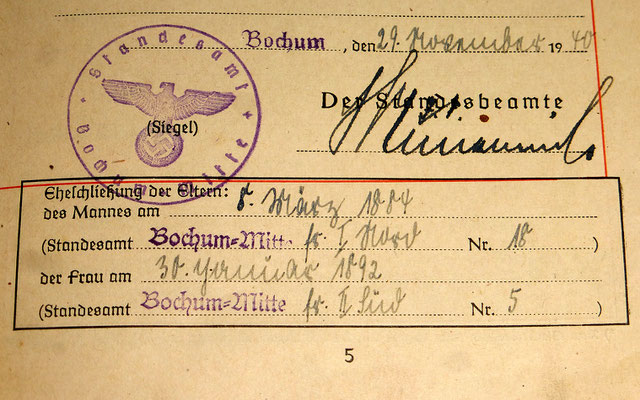 Bochum, den 29. November 1940
Standesamt Bochum-Mitte
(Siegel)
Der Standesbeamte
Eheschließung der Eltern:
des Mannes am 8. März 1884
(Standesamt Bochum-Mitte fr. I Nord Nr. 18)
der Frau am 30. Januar 1892
(Standesamt Bochum-Mitte fr. II Süd Nr. 5)
5